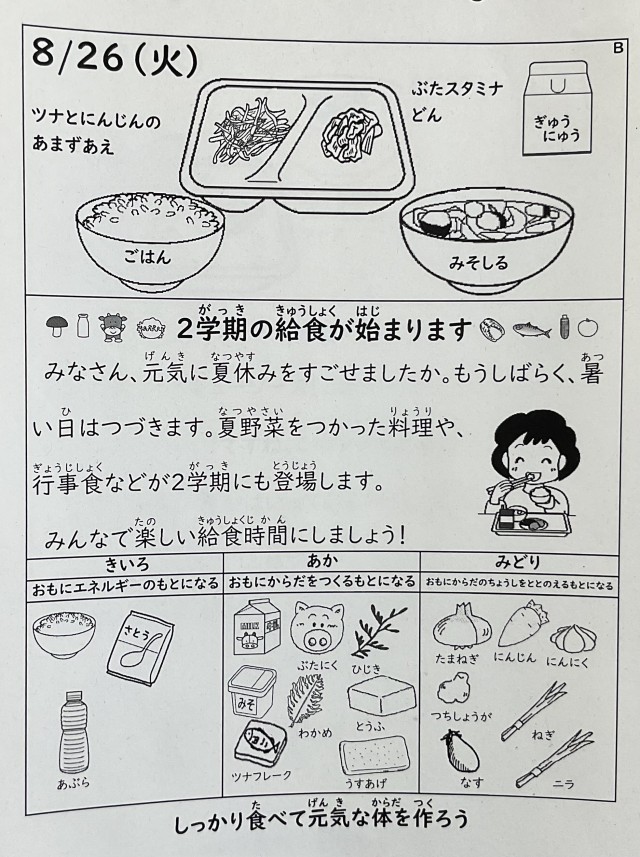 B
8/26(火)
ツナとにんじんの
あまずあえ
ぶたスタミナ
どん
ぎゅう
にゅう
ごはん
みそしる
がっき きゅうしょく はじ
2学期の給食が始まります
げんき なつやす あつ
みなさん、元気に夏休みをすごせましたか。もうしばらく、暑
ひ なつやさい りょうり
い日はつづきます。夏野菜をつかった料理や、
ぎょうじしょく がっき とうじょう
行事食などが2学期にも登場します。
たの きゅうしょくじかん
みんなで楽しい給食時間にしましょう!
きいろ
おもにエネルギーのもとになる
さとう
あぶら
あか
おもにからだをつくるもとになる
MILK
ぶたにく
ひじき
みそ
わかめ
とうふ
ツナフレーク
うすあげ
みどり
おもにからだのちょうしをととのえるもとになる
たまねぎ
にんじん
にんにく
つちしょうが
ねぎ
なす
ニラ
た げんき からだ つく
しっかり食べて元気な体を作ろう